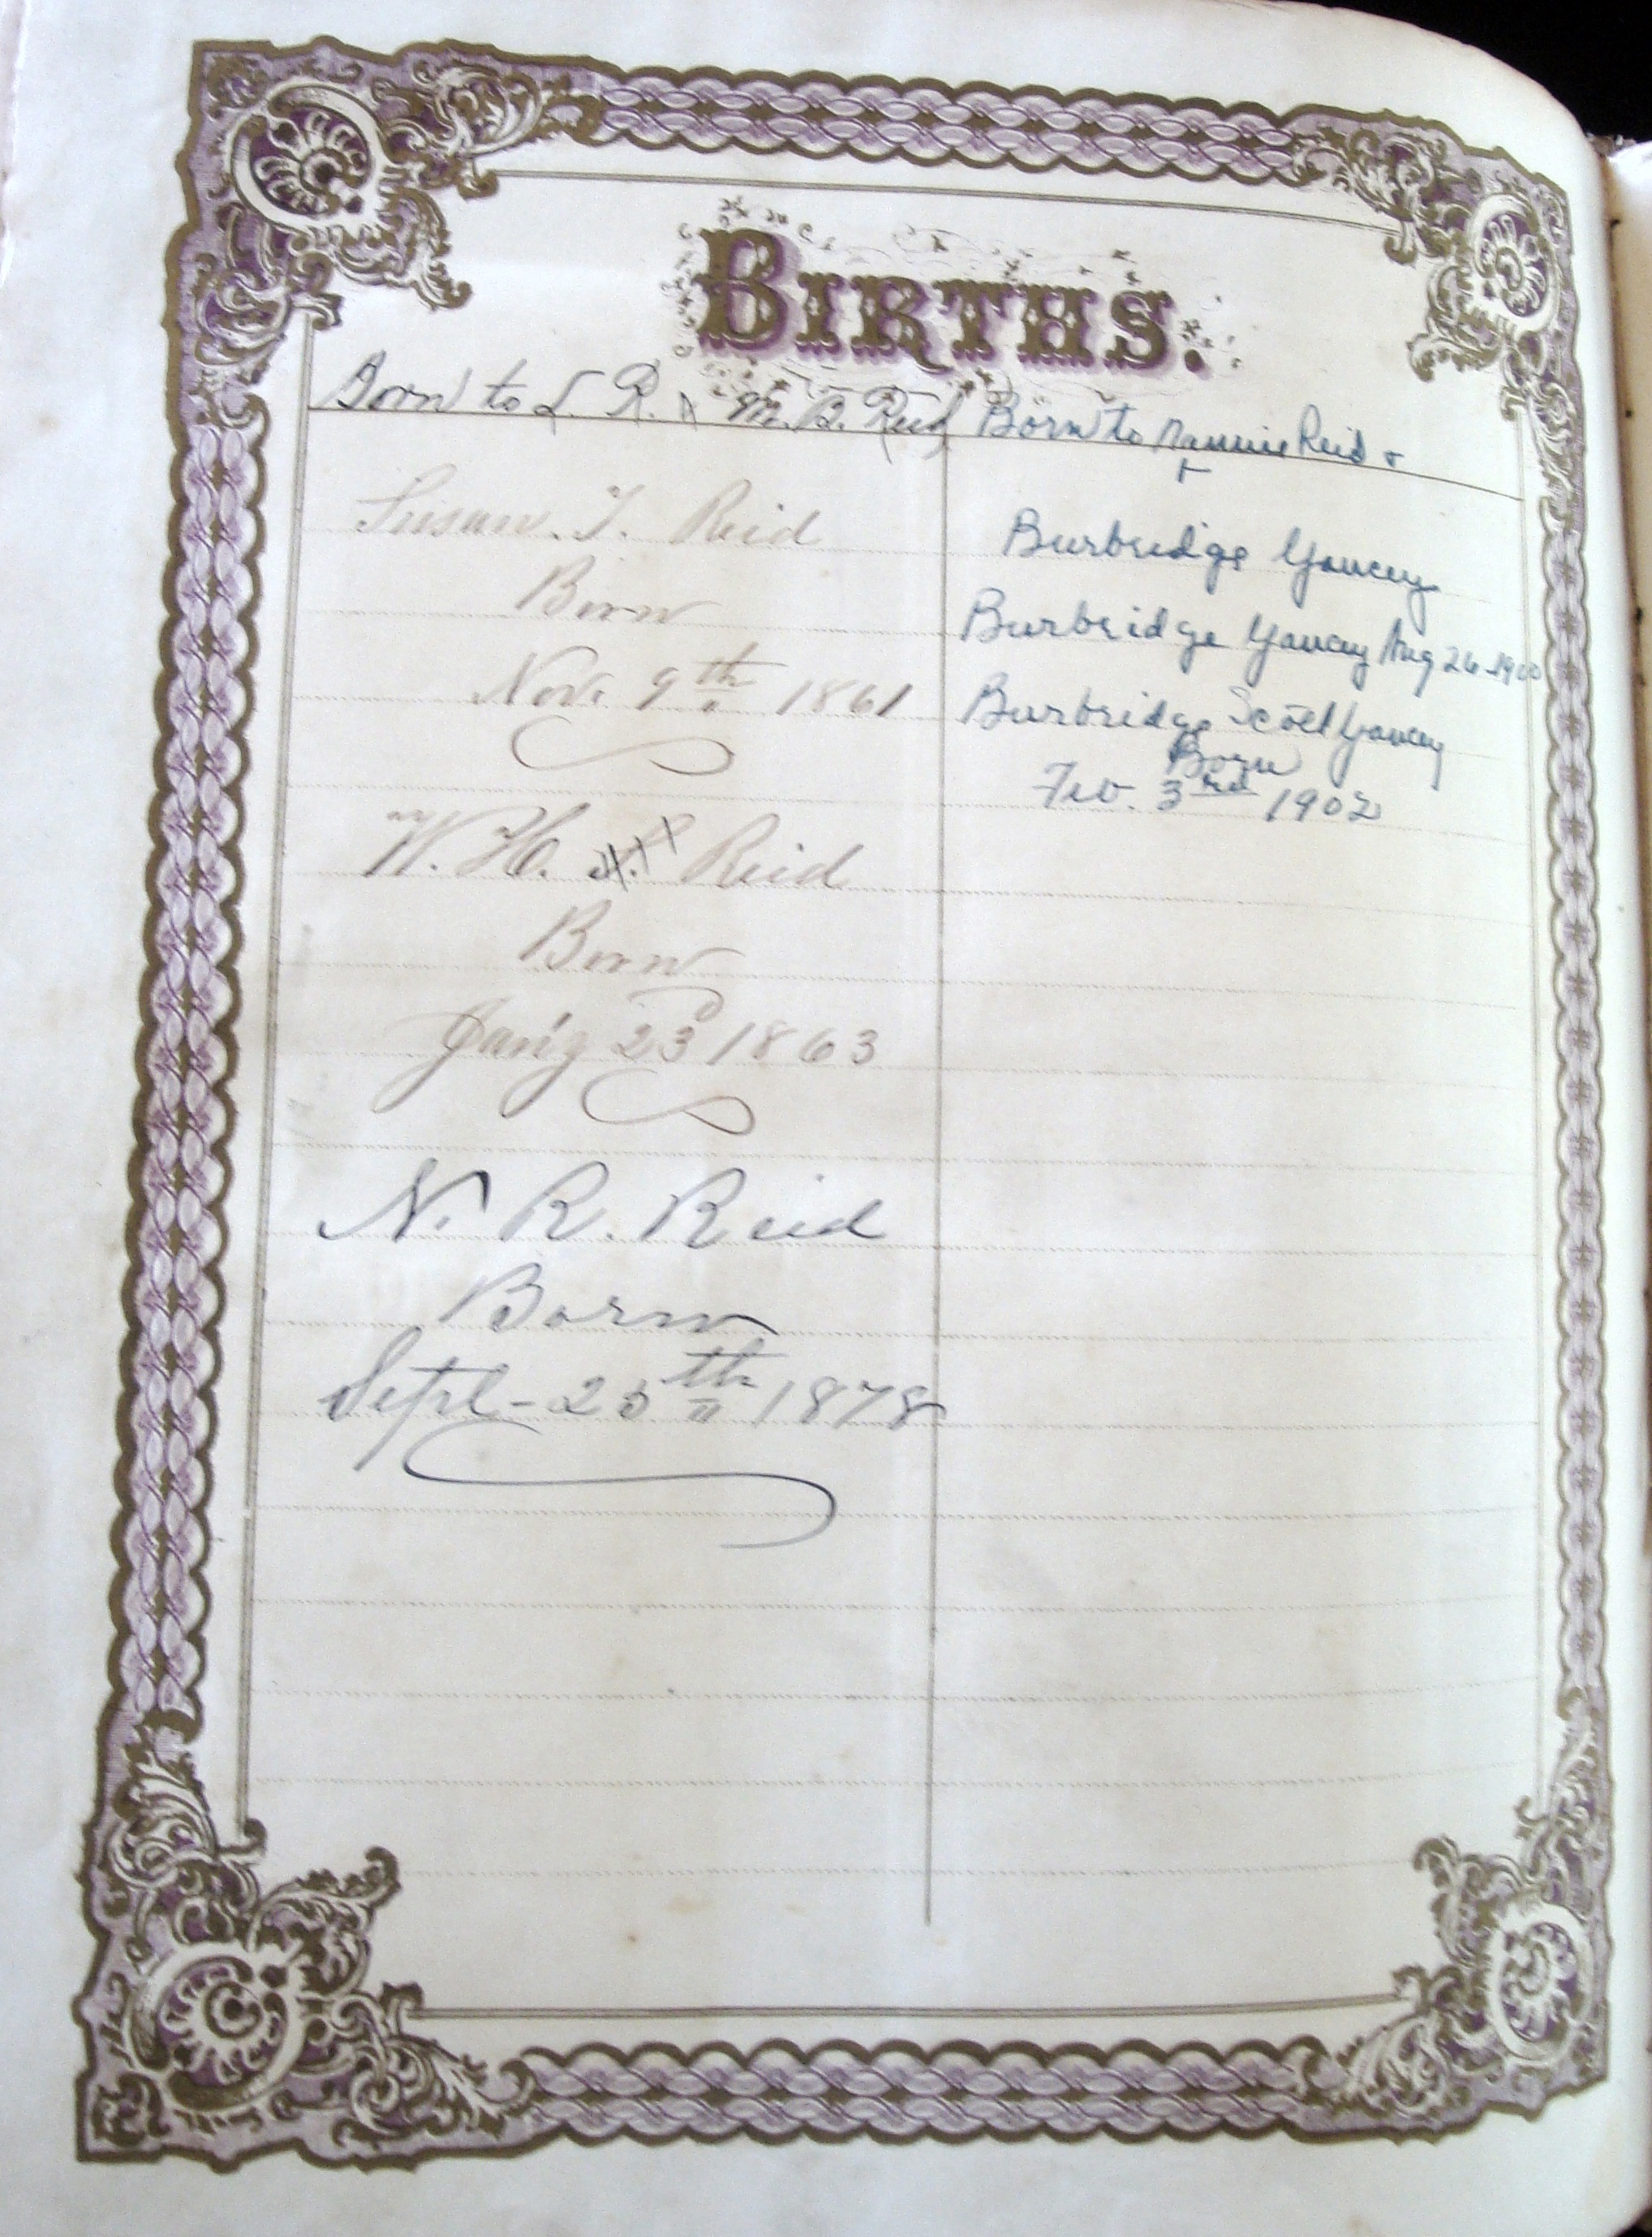 BIRTHS.
Born to L. R. & M. B. Reid
Susan. T. Reid
Born
Nov. 9th 1861
W. H. Reid
Born
Jan'y 23d 1863
N. R. Reid
Born
Sept - 25th 1878
Born to Nannie Reid +
+
Burbridge Yancey
Burbridge Yancey Aug 26-1900
Burbridge Scott Yancey
Born
Feb. 3rd 1902